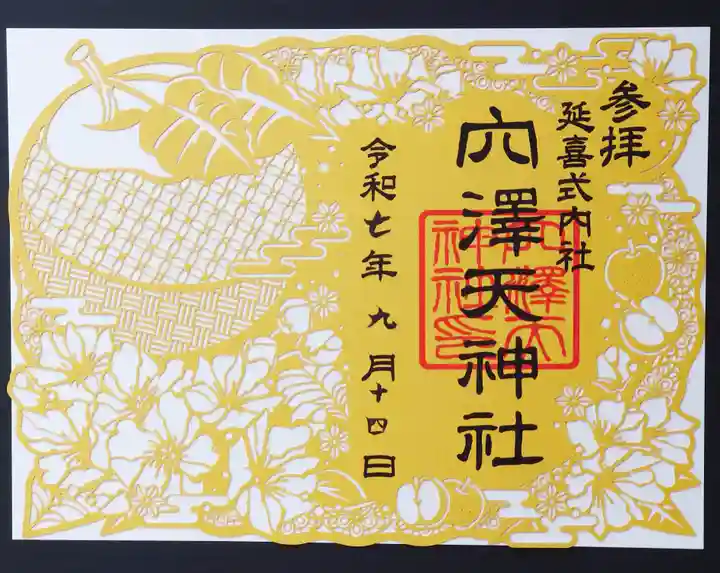 参拝
延喜式内社
穴澤天神社
令和七年九月十四日
穴澤天神社之印